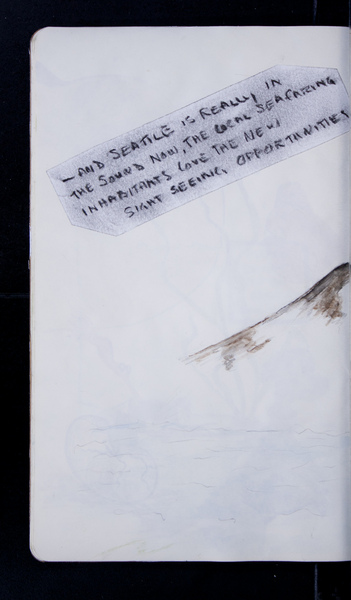 — AND SEATTLE IS REALLY IN
THE SOUND NOW, THE LOCAL SEAFARING
INHABITANTS LOVE THE NEW
SIGHT SEEING OPPORTUNITIES